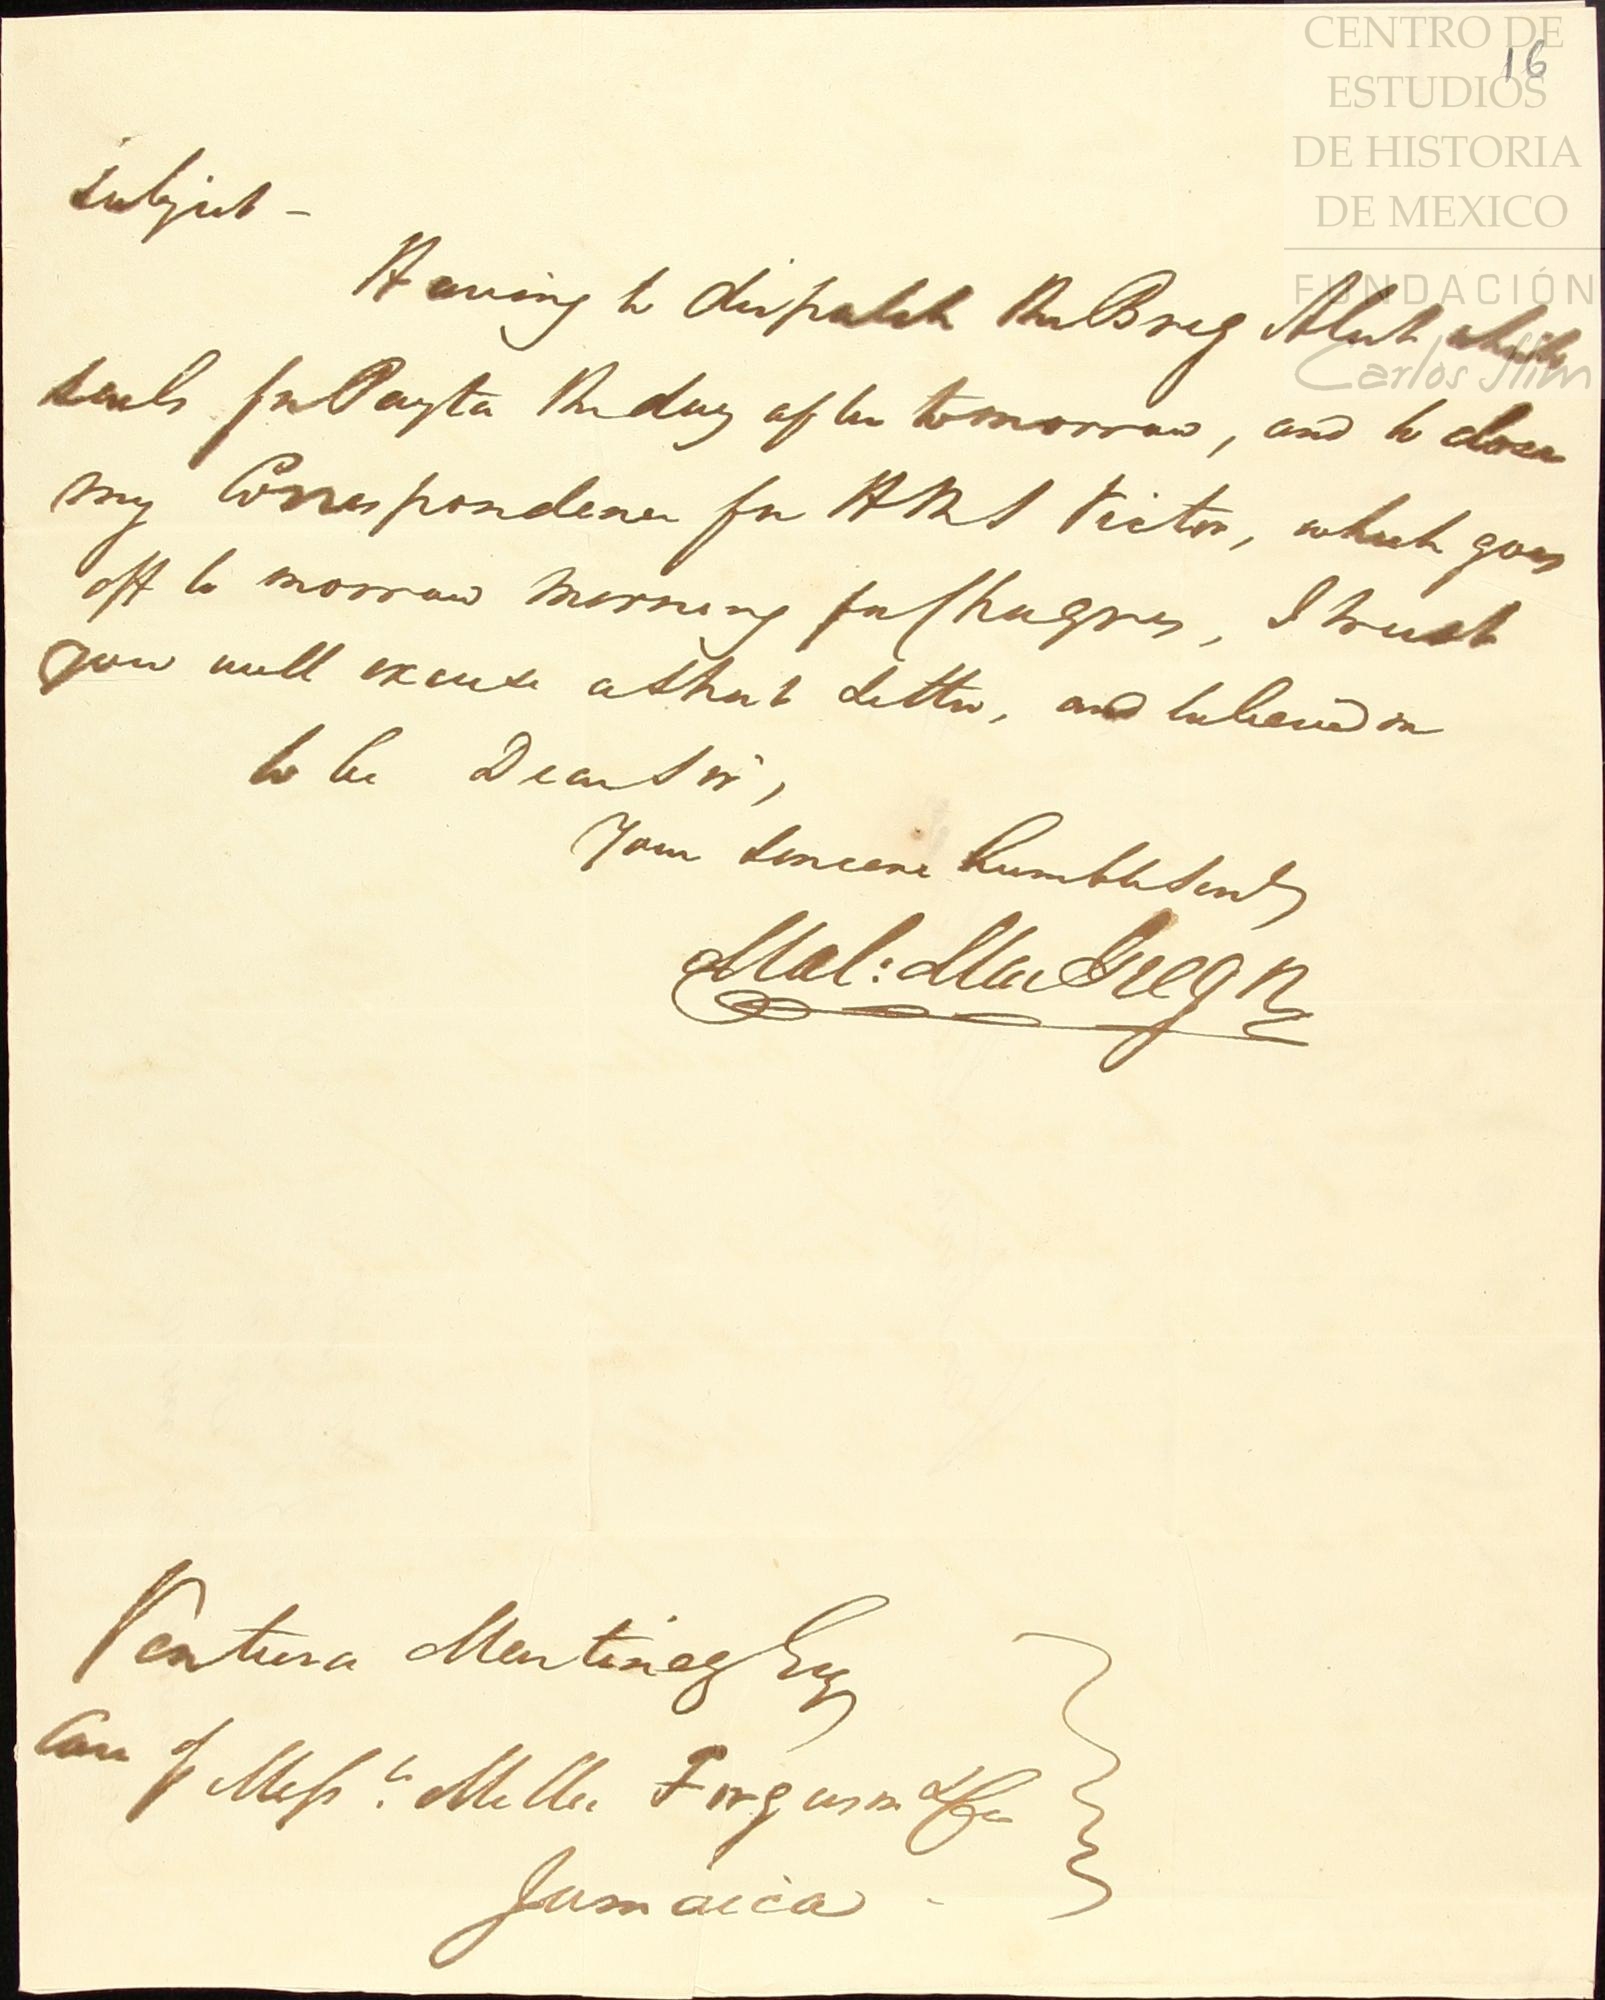 CENTRO DE
ESTUDIOS
DE HISTORIA
DE MEXICO
FUNDACIÓN
Carlos Slim
16
subject –
Having to dispatch the Brig Alert which
sails for Payta the day after tomorrow, and to close
my Correspondence for HMS Victor, which goes
off to morrow morning for Chagres, I trust
you will excuse a short Letter, and believe me
to be Dear Sir,
Your sincere humble Servt
Mal: MacGregor
Ventura Martinez Esqr
Care of Messrs. Miller Forguson & Co
Jamaica –